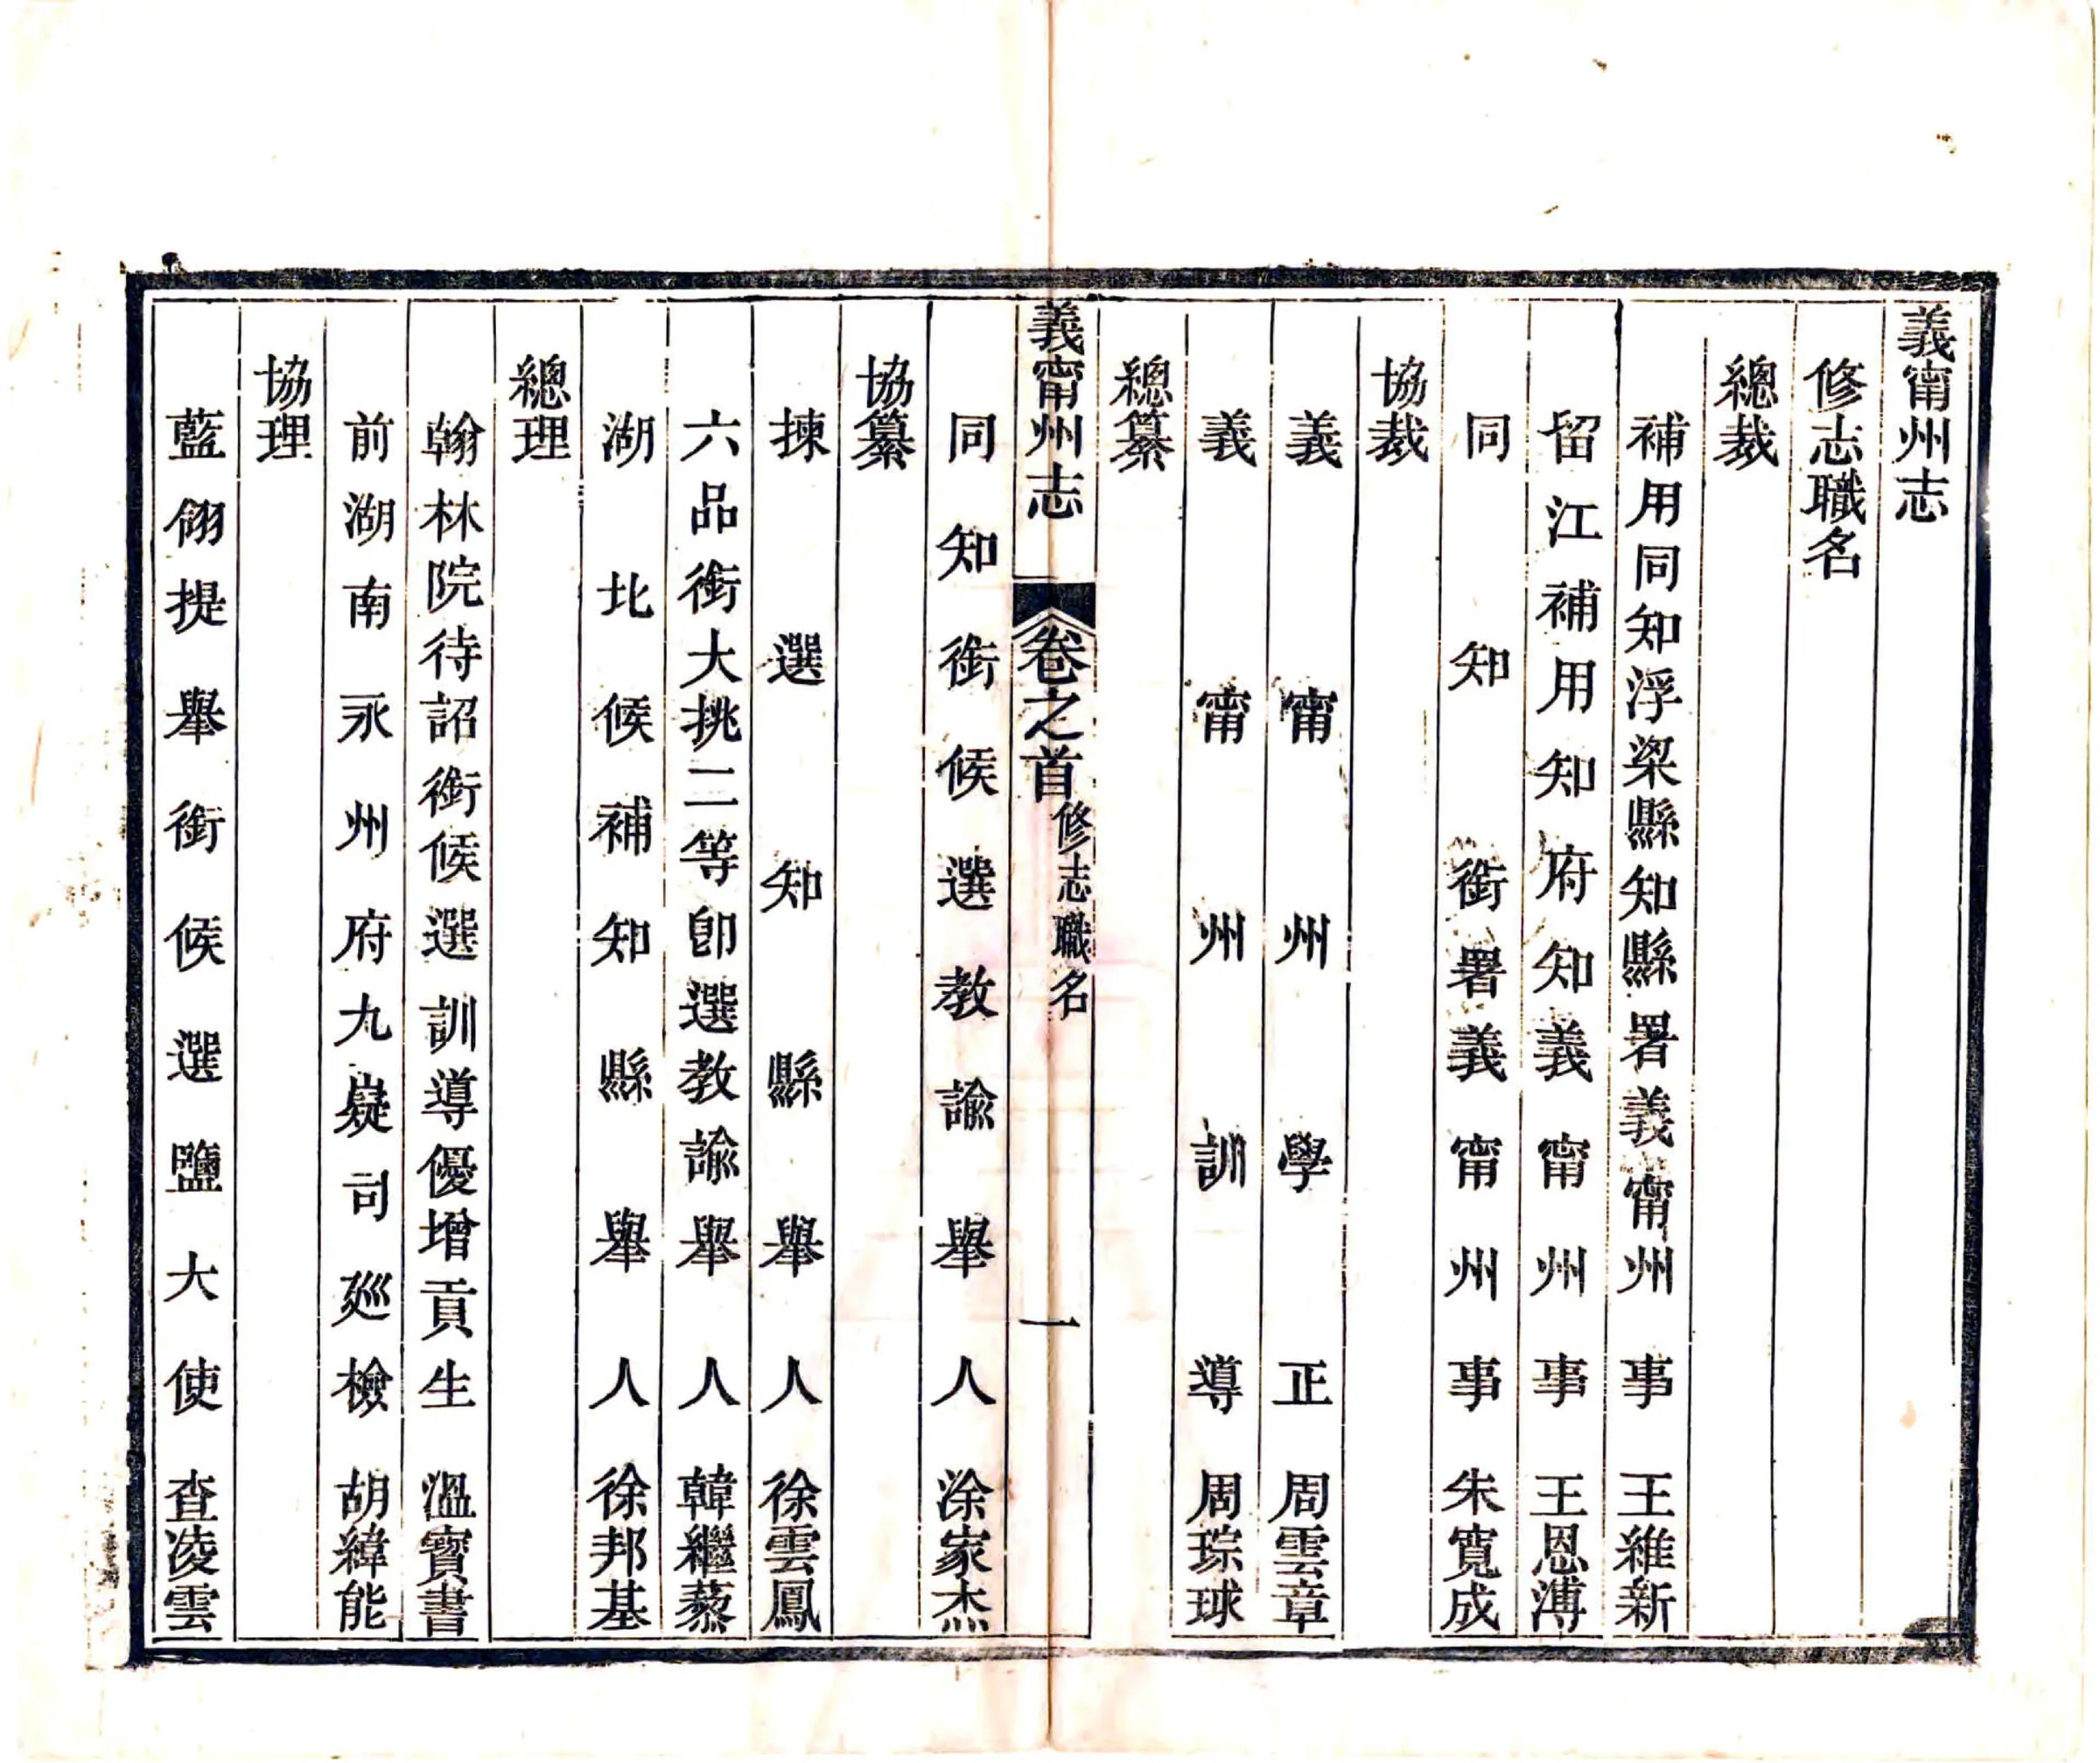 義甯州志
修志職名
總裁
補用同知浮梁縣知縣署義甯州事王維新
留江補用知府知義甯州事王恩溥
同知銜署義甯州事朱寬成
協裁
義甯州學正周雲章
義甯州訓導周琮球
總纂
義甯州志 卷之首 修志職名 一
同知銜候選教諭舉人涂家杰
協纂
揀選知縣舉人徐雲鳳
六品銜大挑二等卽選教諭舉人韓繼藜
湖北候補知縣舉人徐邦基
總理
翰林院待詔銜候選訓導優增貢生溫寶書
前湖南永州府九嶷司廵檢胡緯能
協理
藍翎提舉銜候選鹽大使查凌雲